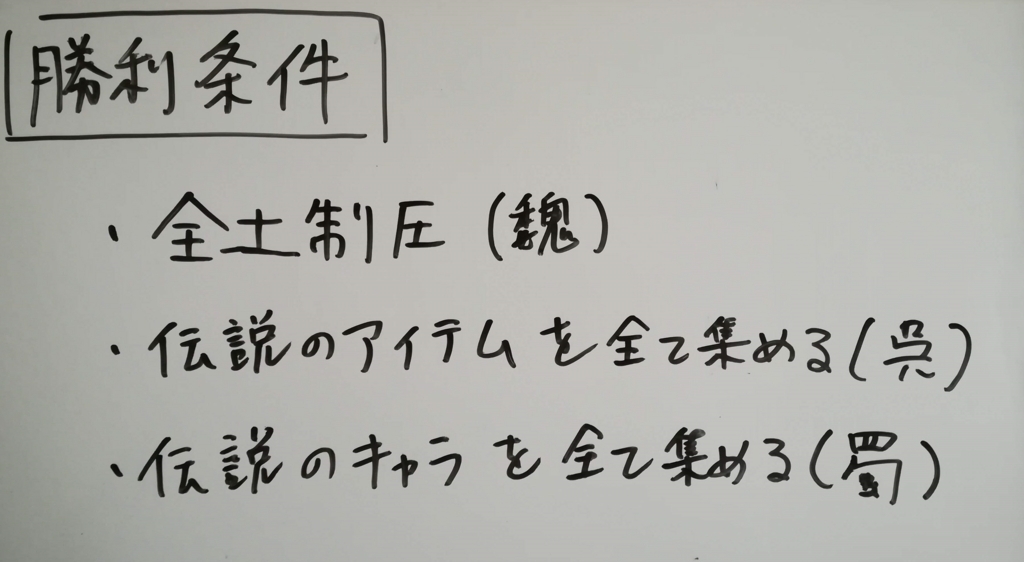 勝利条件
・全土制圧(魏)
・伝説のアイテムを全て集める(呉)
・伝説のキャラを全て集める(蜀)